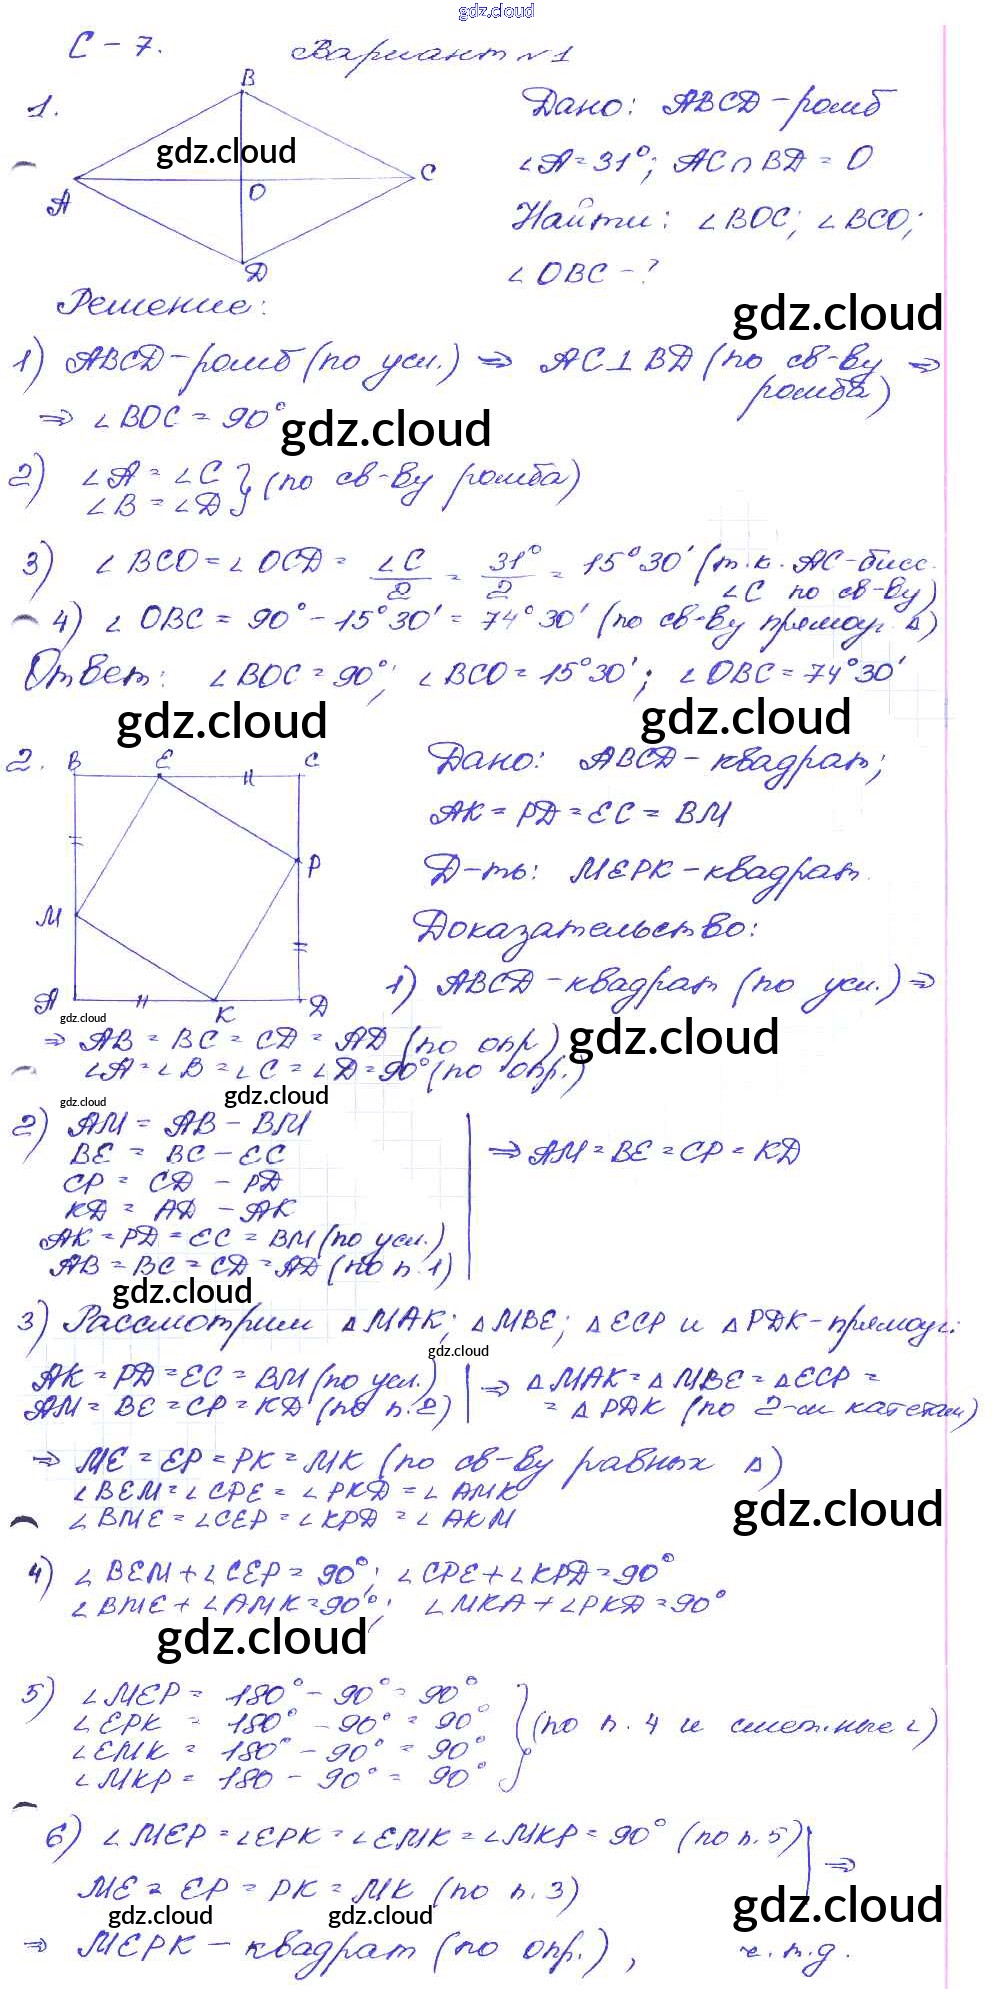 gdz.cloud
С - 7. Вариант №1
1.
B
A
O
C
D
gdz.cloud
Дано: ABCD - ромб
∠A = 31°; AC ∩ BD = O
Найти: ∠BOC; ∠BCO;
∠OBC - ?
gdz.cloud
Решение:
1) ABCD - ромб (по усл.) ⇒ AC ⊥ BD (по св-ву ромба) ⇒
⇒ ∠BOC = 90°
gdz.cloud
2) ∠A = ∠C
∠B = ∠D } (по св-ву ромба)
3) ∠BCO = ∠OCD = ∠C/2 = 31°/2 = 15°30' (т.к. AC - бисс.
∠C по св-ву)
4) ∠OBC = 90° - 15°30' = 74°30' (по св-ву прямоуг. Δ)
Ответ: ∠BOC = 90°; ∠BCO = 15°30'; ∠OBC = 74°30'
gdz.cloud
gdz.cloud
2.
B E C
P
M
A K D
Дано: ABCD - квадрат;
AK = PD = EC = BM
Д-ть: MEPK - квадрат.
Доказательство:
1) ABCD - квадрат (по усл.) ⇒
gdz.cloud
⇒ AB = BC = CD = AD (по опр)
gdz.cloud
∠A = ∠B = ∠C = ∠D = 90° (по опр.)
gdz.cloud
gdz.cloud
2) AM = AB - BM
BE = BC - EC
CP = CD - PD
KD = AD - AK
AK = PD = EC = BM (по усл.)
AB = BC = CD = AD (по п.1)
⇒ AM = BE = CP = KD
gdz.cloud
3) Рассмотрим ΔMAK; ΔMBE; ΔECP и ΔPDK - прямоуг.:
gdz.cloud
AK = PD = EC = BM (по усл.)
AM = BE = CP = KD (по п.2)
⇒ ΔMAK = ΔMBE = ΔECP =
= ΔPDK (по 2-м катетам)
⇒ ME = EP = PK = MK (по св-ву равных Δ)
∠BEM = ∠CPE = ∠PKD = ∠AMK
∠BME = ∠CEP = ∠KPD = ∠AKM
gdz.cloud
4) ∠BEM + ∠CEP = 90°; ∠CPE + ∠KPD = 90°
∠BME + ∠AMK = 90°; ∠MKA + ∠PKD = 90°
gdz.cloud
5) ∠MEP = 180° - 90° = 90°
∠EPK = 180° - 90° = 90°
∠EMK = 180° - 90° = 90°
∠MKP = 180 - 90° = 90°
} (по п. 4 и смежные ∠)
6) ∠MEP = ∠EPK = ∠EMK = ∠MKP = 90° (по п. 5)
ME = EP = PK = MK (по п. 3)
⇒
gdz.cloud
gdz.cloud
gdz.cloud
⇒ MEPK - квадрат (по опр.), ч.т.д.